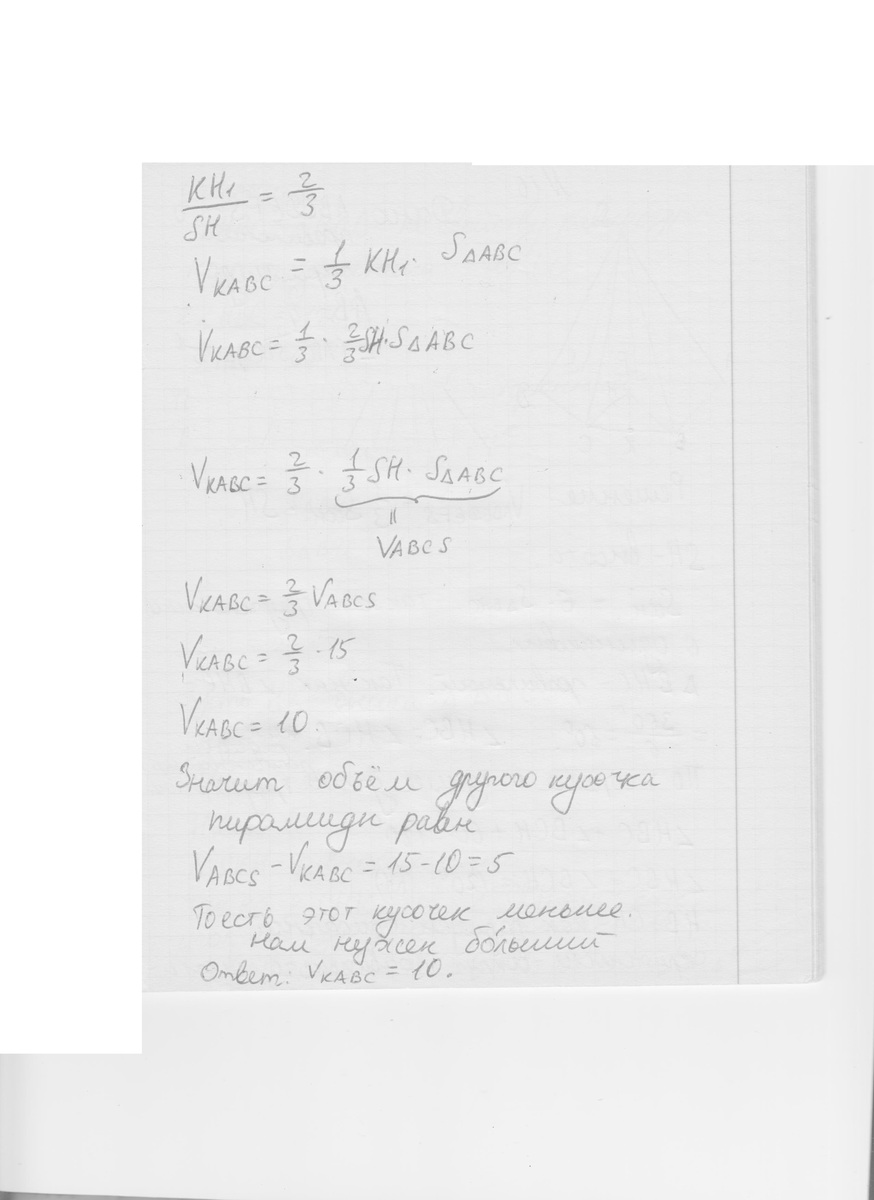 KH₁/SH = 2/3
V_KABC = 1/3 KH₁ · S△ABC
V_KABC = 1/3 · 2/3 SH · S△ABC
V_KABC = 2/3 · 1/3 SH · S△ABC
॥
V_ABCS
V_KABC = 2/3 V_ABCS
V_KABC = 2/3 · 15
V_KABC = 10.
Значит объём другого кусочка
пирамиды равен
V_ABCS - V_KABC = 15 - 10 = 5
То есть этот кусочек меньше.
нам нужен бо́льший
Ответ: V_KABC = 10.